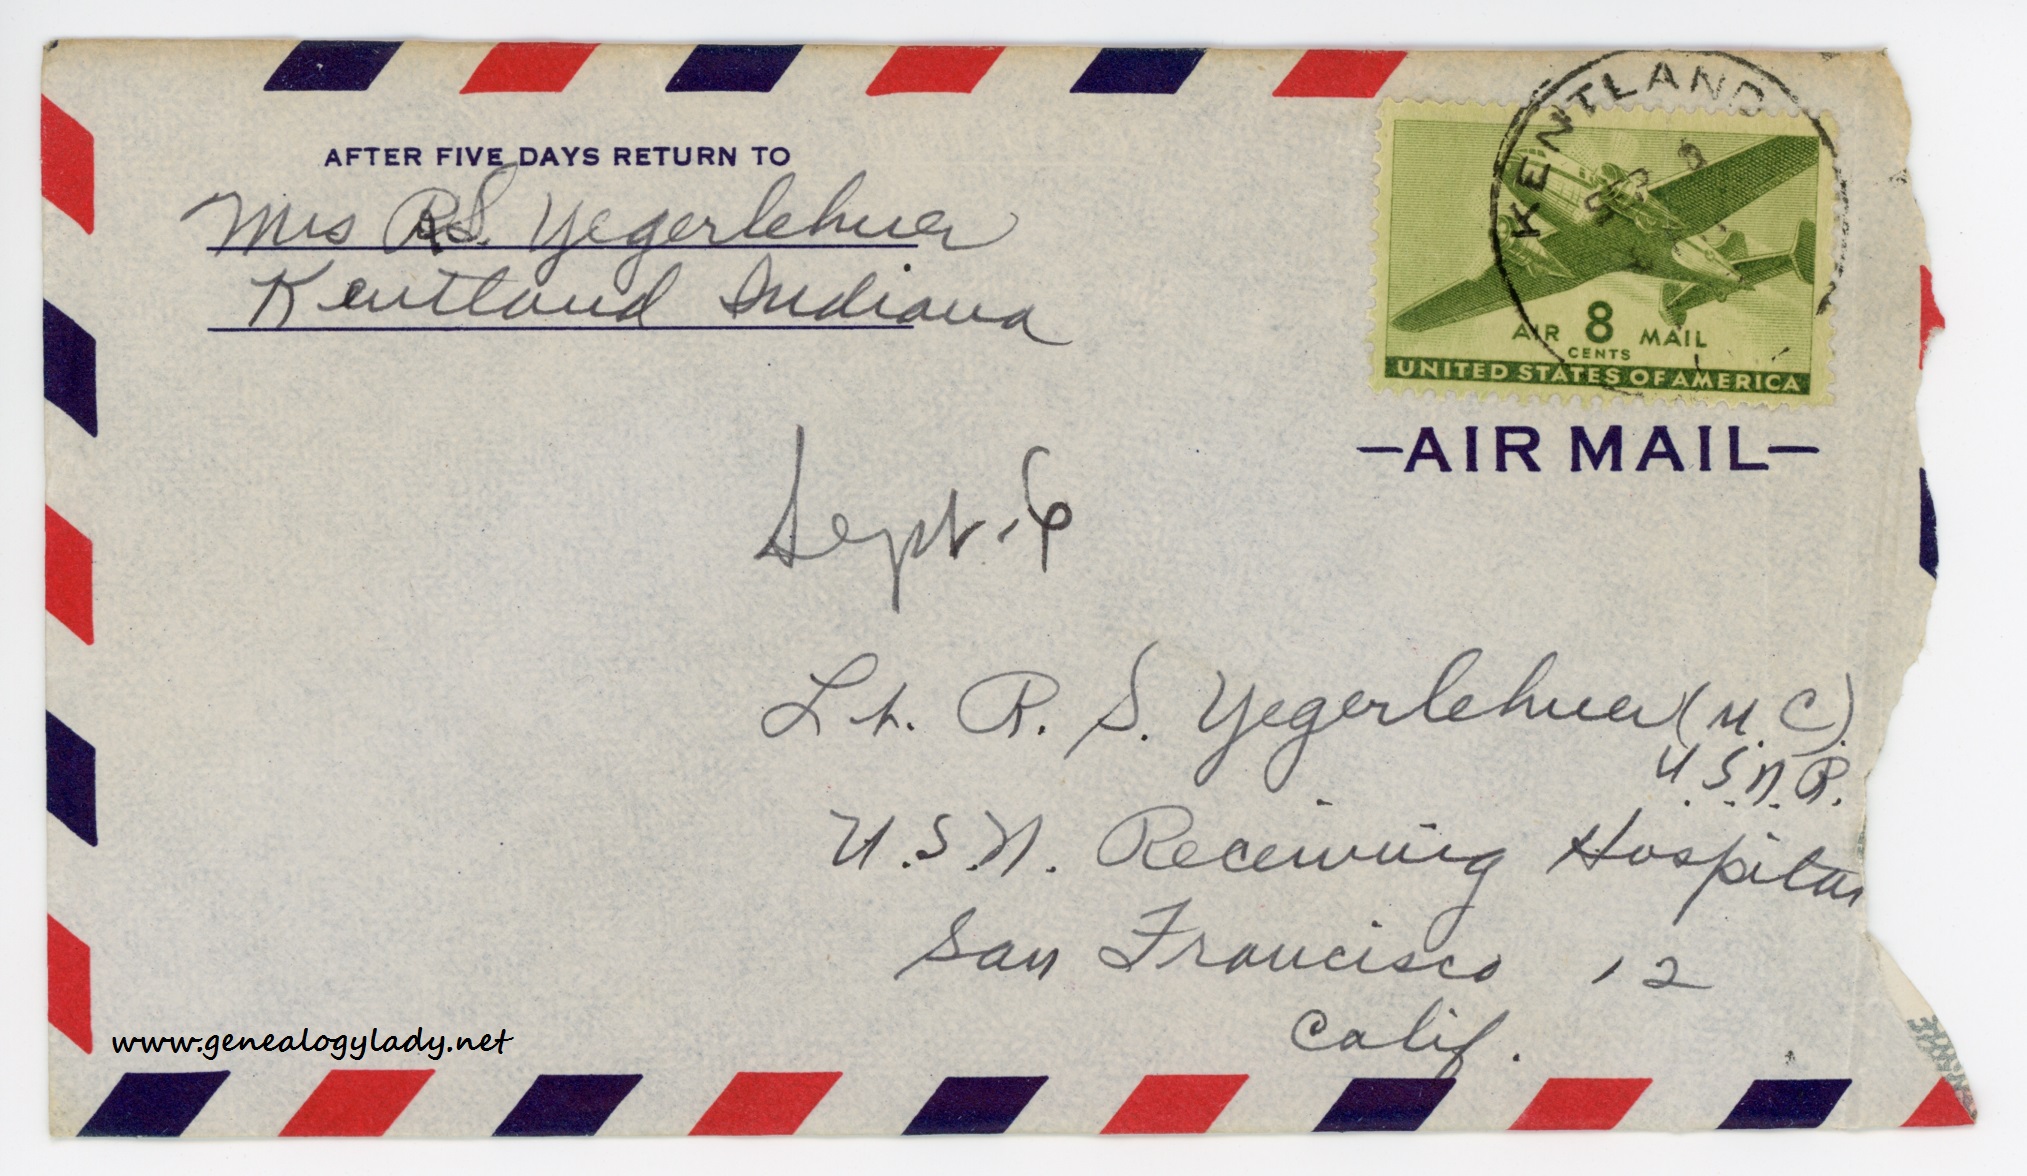 AFTER FIVE DAYS RETURN TO
Mrs R.S. Yegerlehner
Kentland Indiana
KENTLAND
SEP
AIR 8 MAIL
CENTS
UNITED STATES OF AMERICA
—AIR MAIL—
Sept. 6
Lt. R. S. Yegerlehner (M.C.)
U.S.N.R.
U.S.N. Receiving Hospital
San Francisco 12
Calif.
www.genealogylady.net